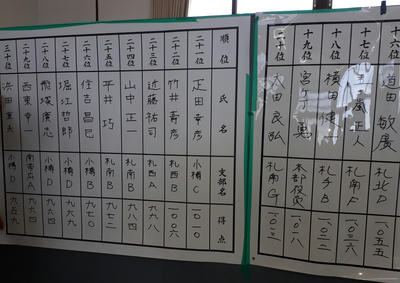 十六位 道田 敏廣 札北D 一〇五五
十七位 正人
十八位 横田 健一 札南F 一〇三六
十九位 札手B 一〇三二
本部役員 一〇一八
二十位 太田 良弘 札南G 一〇一三
順位 氏名 支部名 得点
二十一位 疋田 幸彦 小樽C 一〇一〇
二十二位 竹井 春彦 札西B 一〇〇六
二十三位 近藤 祐司 札西A 九九八
二十四位 山中 正一 札南B 九八四
二十五位 平井 巧 札南B 九七三
二十六位 住吉 昌巳 小樽B 九七〇
二十七位 堀江 哲郎 小樽D 九六九
二十八位 飛塚 廣忠 小樽D
二十九位 西東 幸
三十位 浜田 小樽D 九五九